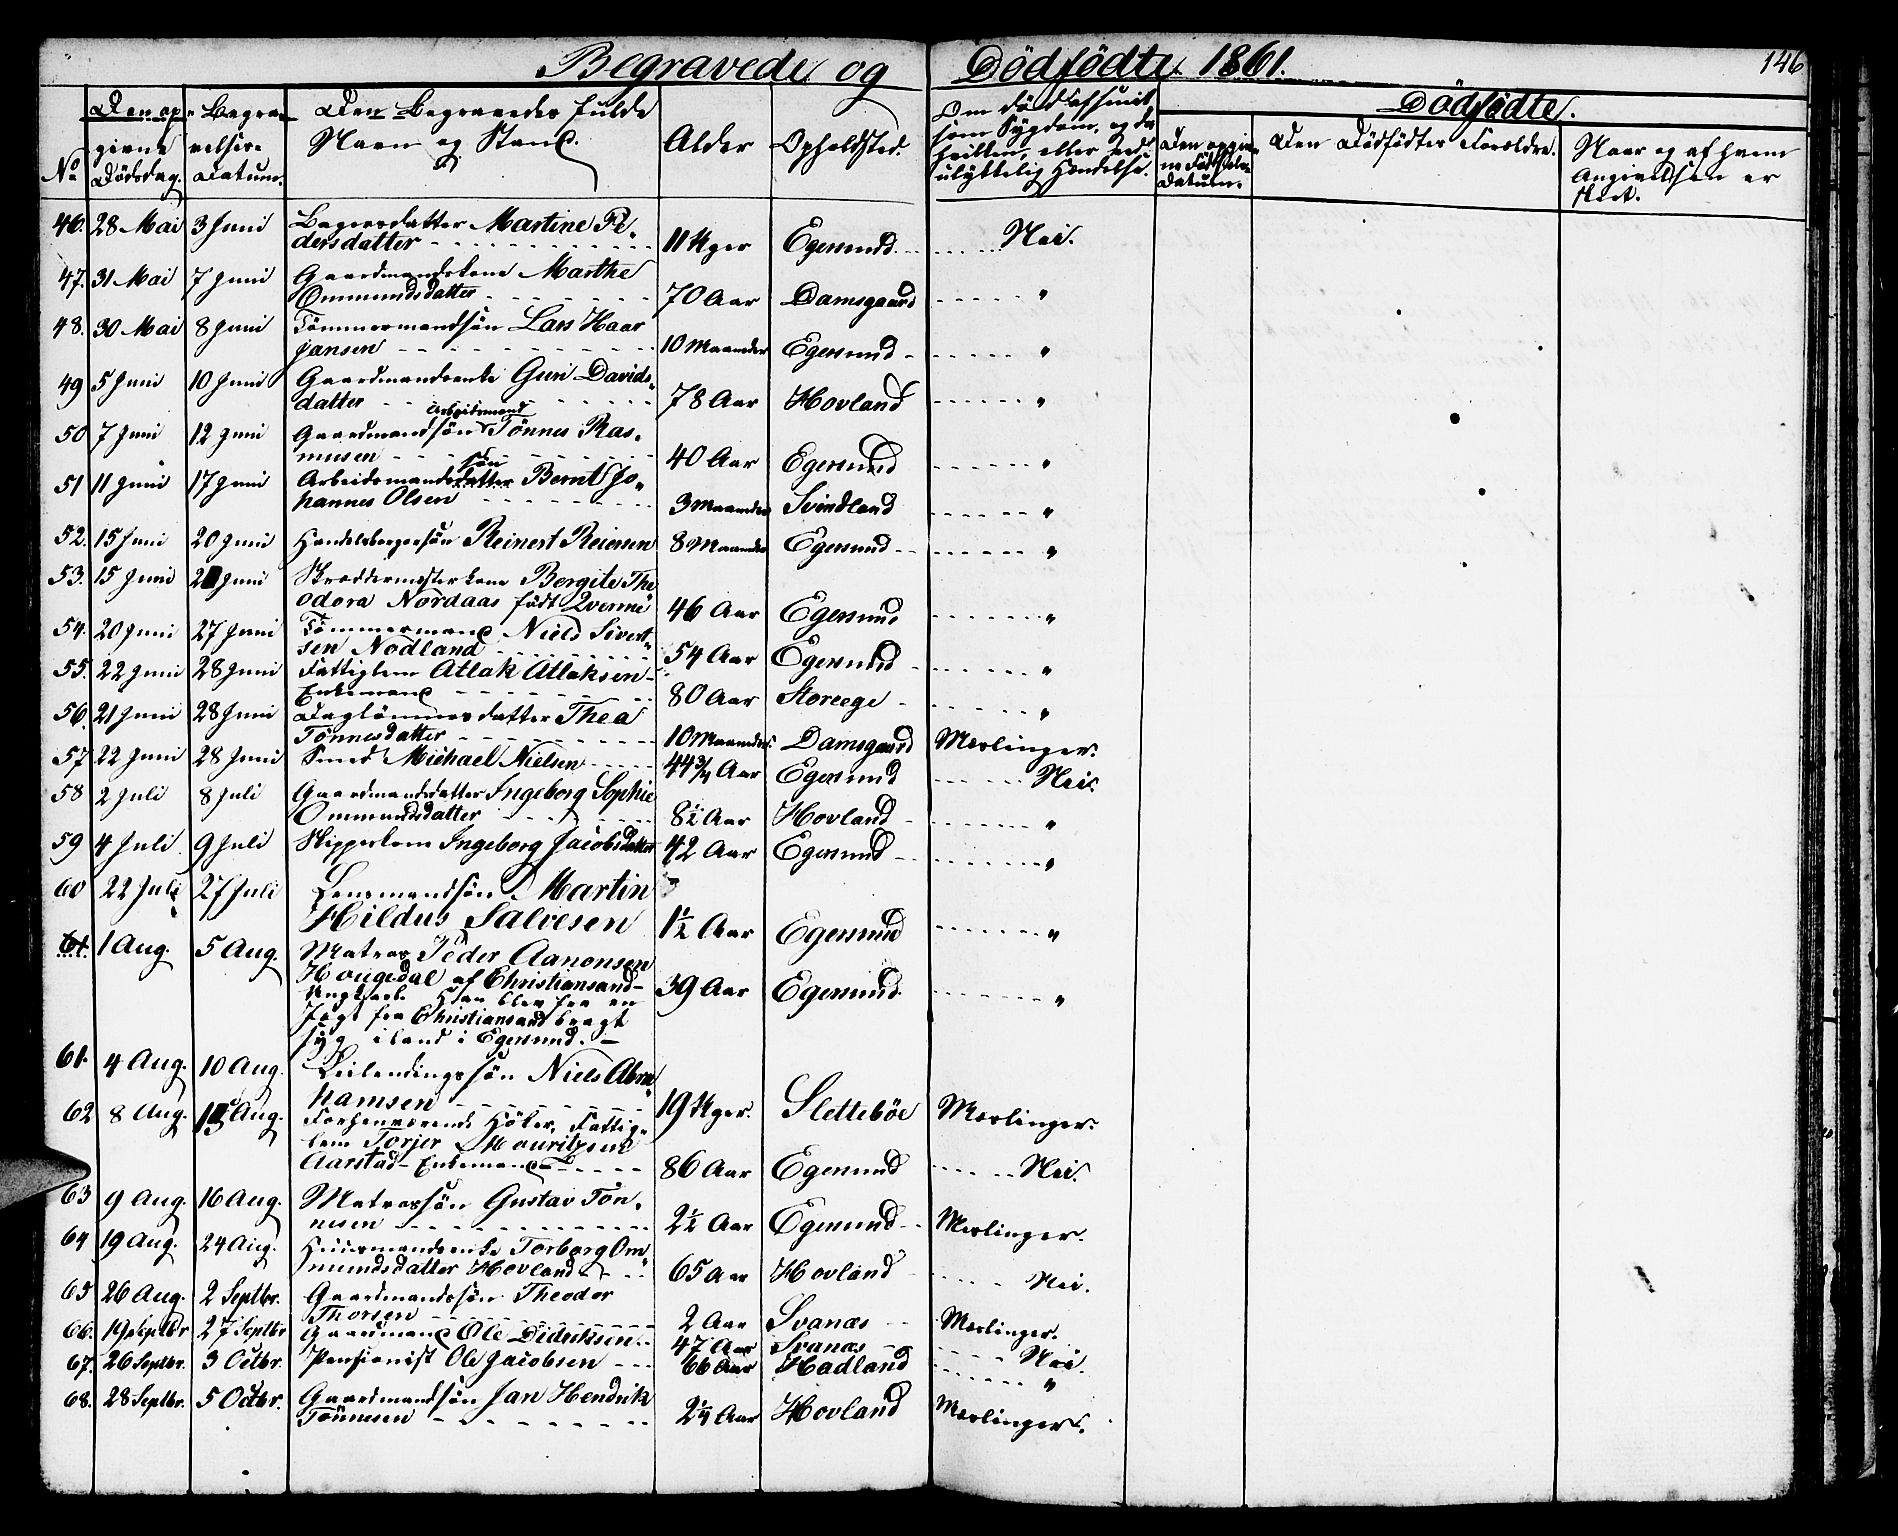 Begravede og Dödfödte 1861.
146
No
Den opgivne Dödsdag.
Begravelses Datum.
Den Begravedes fulde Navn og Stand.
Alder
Opholdsted.
Dödfödte.
Den Dödfödtes Forældre.
Naar og af hvem Angivelsen er skeet.
46. 28 Mai 3 Juni Bagersdatter Martine Pe-
dersdatter 11 Uger Egersund Nei.
47. 31 Mai 7 Juni Gaardmandskone Marthe
Ommundsdatter 70 Aar Damsgaard "
48. 30 Mai 8 Juni Tömmermandsön Lars Haar
jansen 10 Maaneder Egersund "
49 5 Juni 10 Juni Gaardmandsenke Guri Davids-
datter 78 Aar Hovland "
Arbeidsmand
50 7 Juni 12 Juni Gaardmandsön Tönnes Ras-
musen 40 Aar Egersund "
sön
51 11 Juni 17 Juni Arbeidsmandsdatter Bernt Jo-
hannes Olsen 3 Maaneder Svindland "
52. 15 Juni 20 Juni Handelsborgersön Reinert Reiersen 8 Maaneder Egersund "
53. 15 Juni Juni Skræddermester kone Bergite The
odora Nordaas födt 46 Aar Egersund "
54. 20 Juni 27 Juni Tömmermand Niels Sivert-
sen Nodland 54 Aar Egersund "
55. 22 Juni 28 Juni Fattiglem Atlak Atlaksen
Enkemand 80 Aar Storeege "
56. 21 Juni 28 Juni Daglönnersdatter Thea
Tönnesdatter 10 Maaneder Damsgaard Mæslinger.
57 22 Juni 28 Juni Smed Michael Nielsen 44 3/4 Aar Egersund Nei
58 2 Juli 8 Juli Gaardmandsdatter Ingeborg Sophie
Ommundsdatter 8 1/2 Aar Hovland "
59 4 Juli 9 Juli Skipperkone Ingeborg Jacobsdatter 42 Aar Egersund "
60 22 Juli 27 Juli Lensmandsön Martin
Hildus Salvesen 1 1/2 Aar Egersund "
61. 1 Aug. 5 Aug. Matros Peder Aanonsen
Hougedal af Christiansand
Ungkarl. Han blev fra en
Jagt fra Christiansand bragt
syg iland i Egersund. 39 Aar Egersund. "
61. 4 Aug. 10 Aug. Leilendingssön Niels Abra
hamsen 19 Uger. Sletteböe Mæslinger.
62 8 Aug. Aug. Forhenværende Höker, Fattig-
lem Torjer Mouritzsen
Aarstad Enkemand 86 Aar Egersund Nei.
63 9 Aug. 16 Aug. Matrossön Gustav Tön-
nesen 2 1/2 Aar Egersund Mæslinger.
64 19 Aug. 24 Aug. Huusmandsenke Torborg Om
mundsdatter Hovland 65 Aar Hovland Nei.
65 26 Aug. 2 Septbr. Gaardmandssön Theodor
Thorsen 2 Aar Svanæs Mæslinger.
66. 19 Septbr 27 Septbr Gaardmand Ole Didriksen 47 Aar Svanæs Nei
67. 26 Septbr. 3 Octbr. Pensionist Ole Jacobsen 66 Aar Hadland "
68. 28 Septbr. 5 Octbr. Gaardmandsön Jan Hendrik
Tönnesen 2 1/4 Aar Hovland Mæslinger.